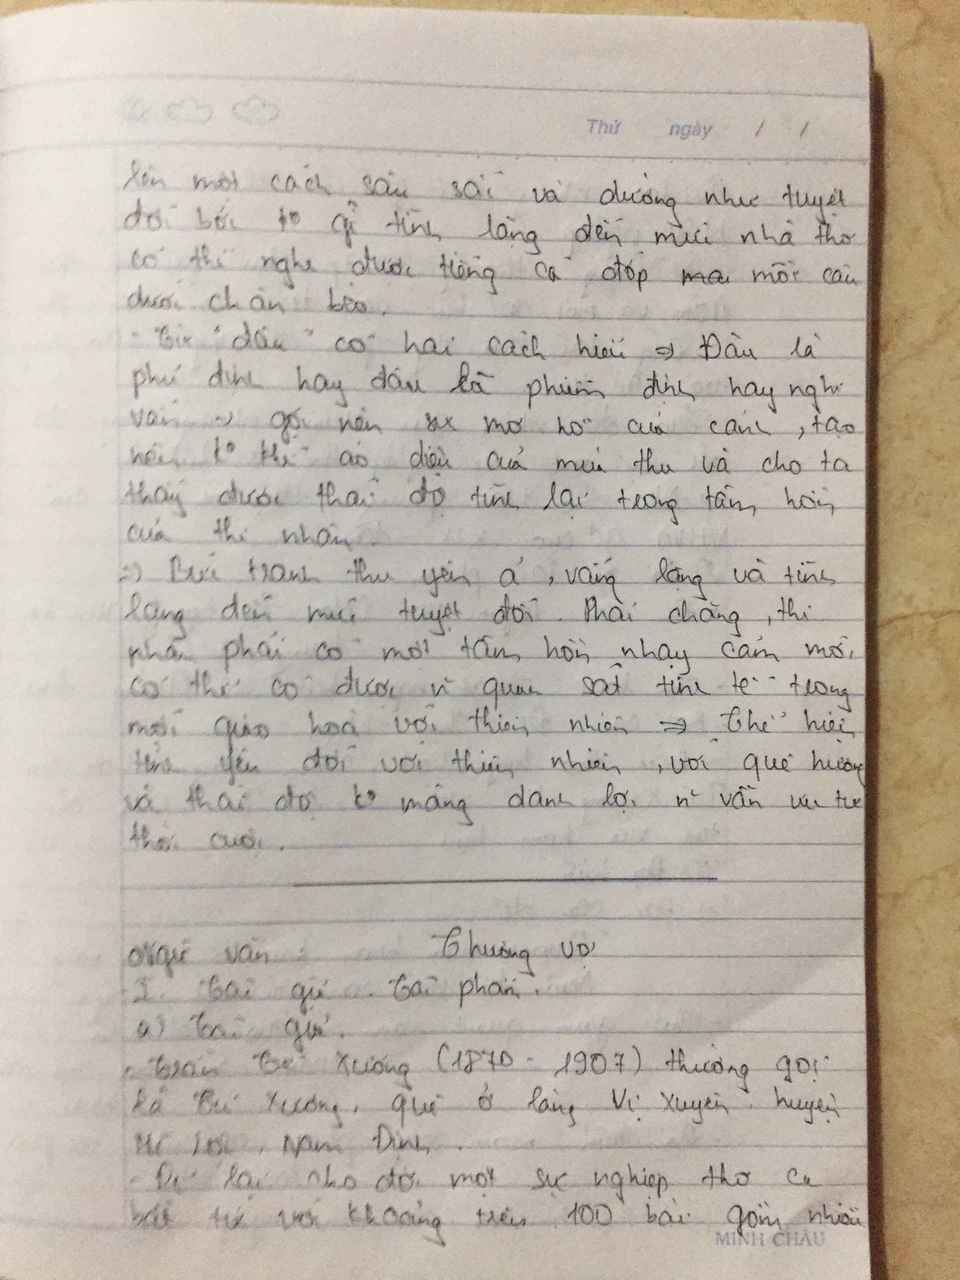 Thứ ngày / /
lên một cách sâu sắc và dường như tuyệt
đối bởi ko gì tĩnh lặng đến mức nhà thơ
có thể nghe được tiếng cá đớp mồi câu
dưới chân bèo.
- Từ "đâu" có hai cách hiểu => Đâu là
phủ định hay đâu là phiếm định hay nghi
vấn -> gợi nên sự mơ hồ của cảnh, tạo
nên ko khí ảo diệu của mùa thu và cho ta
thấy được thái độ tĩnh lại trong tâm hồn
của thi nhân.
=> Bức tranh thu yên ả, vắng lặng và tĩnh
lặng đến mức tuyệt đối. Phải chăng, thi
nhân phải có một tâm hồn nhạy cảm mới
có thể có được n~ quan sát tinh tế trong
mối giao hoà với thiên nhiên => Thể hiện
tình yêu đối với thiên nhiên, với quê hương
và thái độ ko màng danh lợi n~ vẫn ưu tư
thời cuộc.
Ngữ văn : Thương vợ
I. Tác giả. Tác phẩm.
a) Tác giả.
- Trần Tế Xương (1870 - 1907) thường gọi
là Tú Xương, quê ở làng Vị Xuyên, huyện
Mĩ Lộc, Nam Định.
- Để lại cho đời một sự nghiệp thơ ca
bất tử với khoảng trên 100 bài gồm nhiều
MINH CHÂU